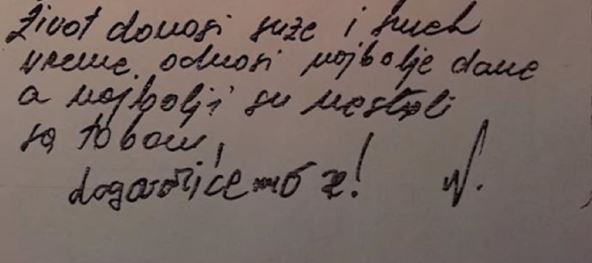 život donosi suze i smeh
vreme odnosi najbolje dane
a najbolji su nestali
sa tobom,
! N.